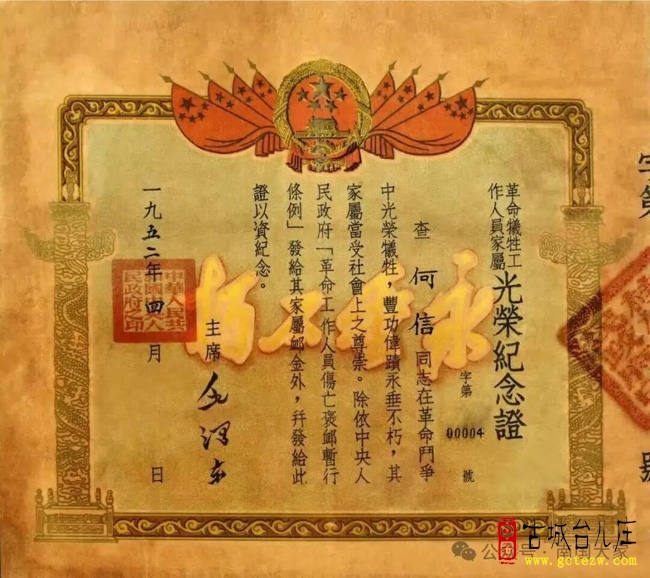 字第
號
革命犧牲工
作人員家屬
光榮紀念證
字第 00004 號
查 何信 同志在革命鬥爭
中光榮犧牲,豐功偉蹟永垂不朽,其
家屬當受社會上之尊崇。除依中央人
民政府「革命工作人員傷亡褒卹暫行
條例」發給其家屬卹金外,幷發給此
證以資紀念。
永垂不朽
主席 毛澤東
一九五二年四月 日
中華人民共
和國中央人
民政府之印
古城台儿庄
www.gctezw.com
公众号·南国大家